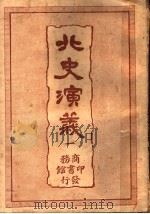 北史演義
商務印書館發行